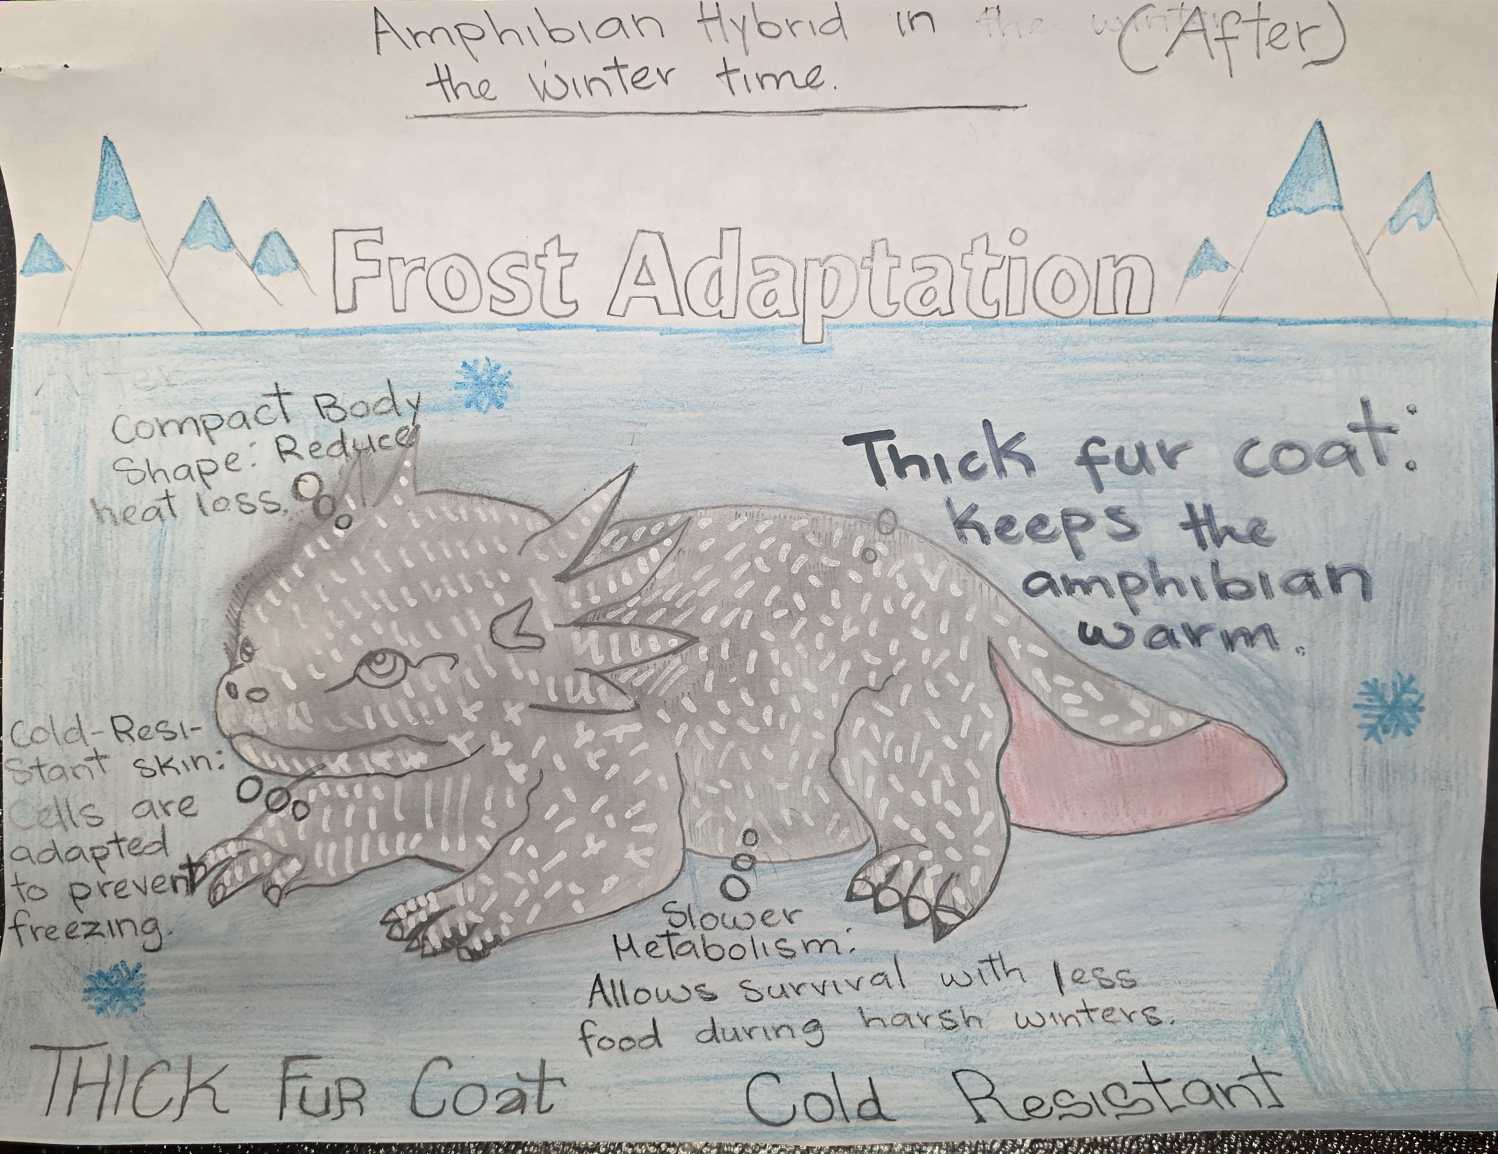 Amphibian Hybrid in the winter (After)
the winter time.
Frost Adaptation
After
Compact Body
Shape: Reduces
heat loss.
Thick fur coat:
keeps the
amphibian
warm.
Cold-Resi-
stant skin:
Cells are
adapted
to prevent
freezing.
Slower
Metabolism:
Allows survival with less
food during harsh winters.
THICK FUR Coat
Cold Resistant